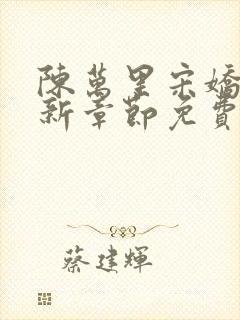 陳萬里宋嬌
新章節免費
蔡建輝